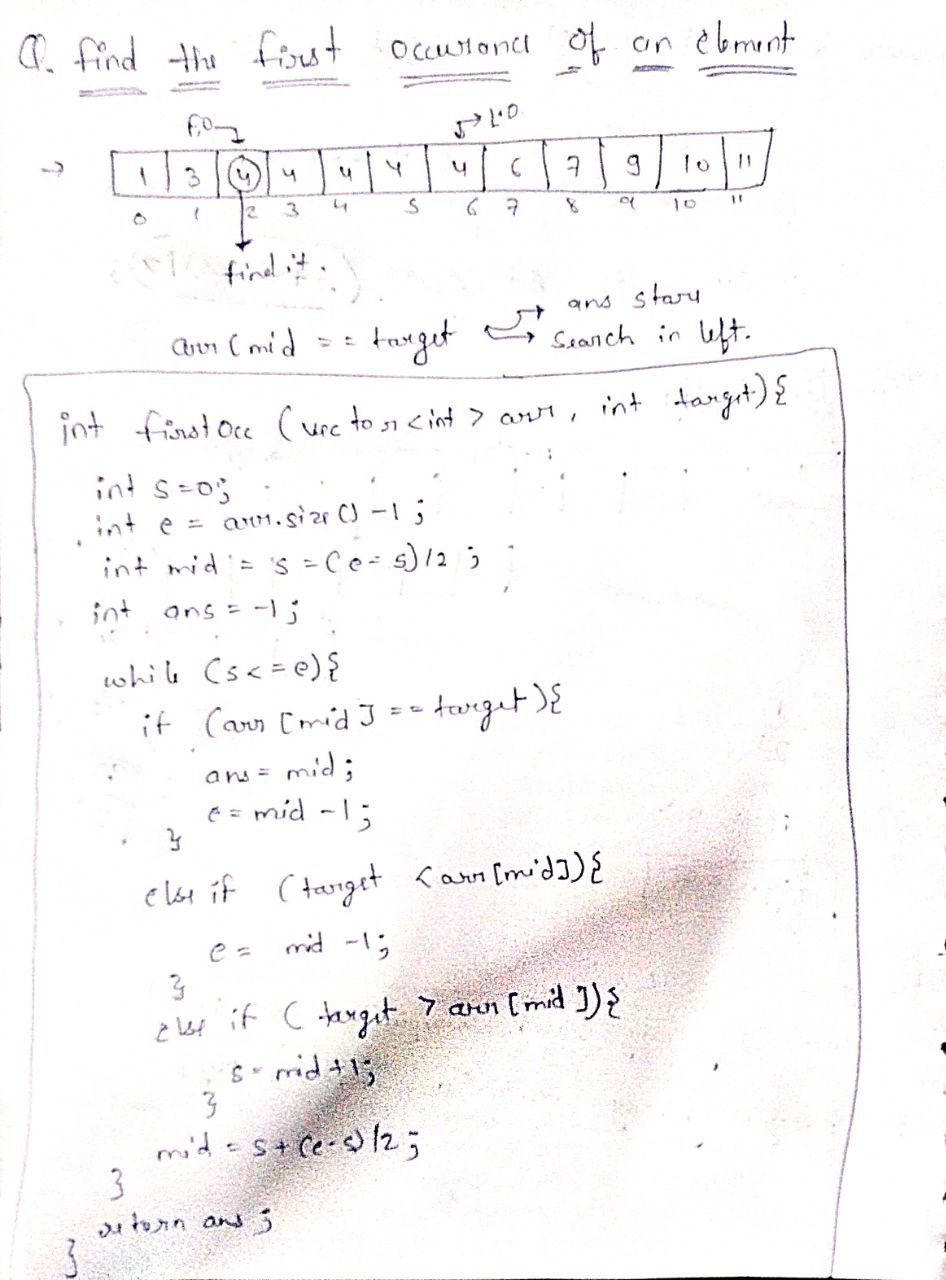 Q. find the first occurance of an element
F.O L.O
→ 1 3 4 4 4 4 4 6 7 9 10 11
0 1 2 3 4 5 6 7 8 9 10 11
find it.
ans store
arr(mid == target search in left.
int firstOcc (vector<int> arr, int target){
int s=0;
int e = arr.size() -1;
int mid = s = (e-s)/2;
int ans = -1;
while (s<=e){
if (arr[mid] == target){
ans = mid;
e = mid -1;
}
else if (target < arr[mid]){
e = mid -1;
}
else if (target > arr[mid]){
s = mid+1;
}
mid = s+(e-s)/2;
}
return ans;
}